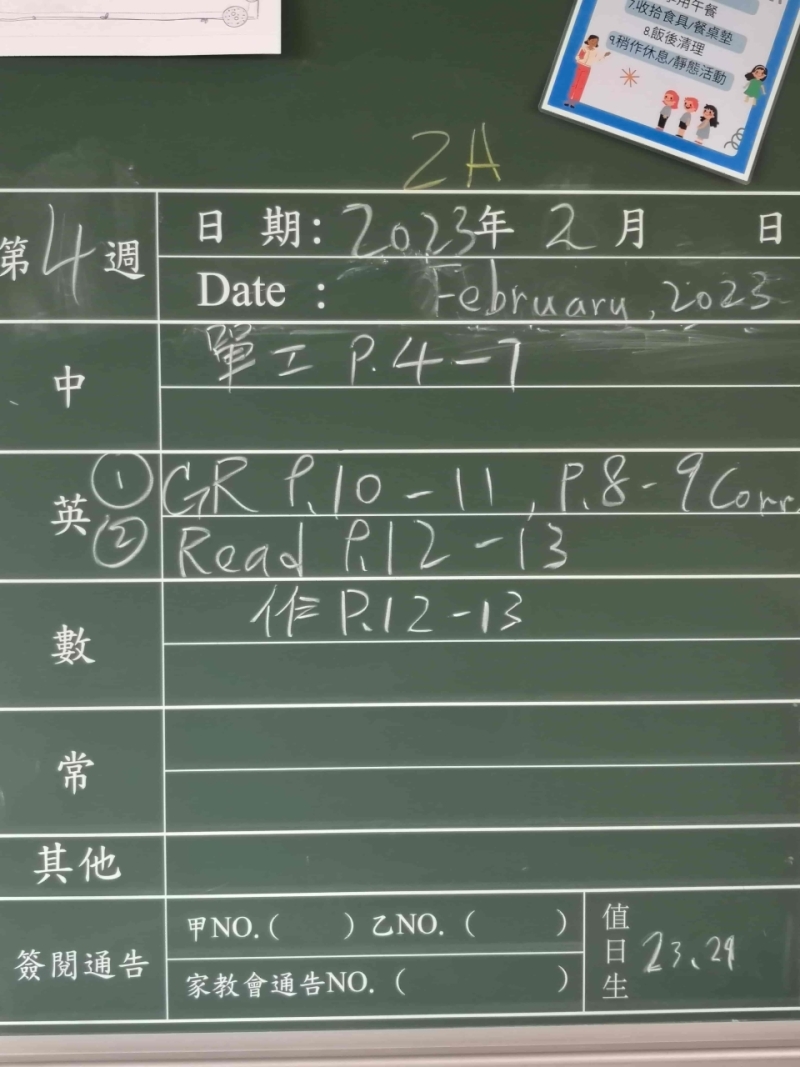 享用午餐
7.收拾食具/餐桌墊
8.飯後清理
9.稍作休息/靜態活動
2A
第4週
日 期: 2023年 2月 日
Date : February, 2023
中 單工 P.4-7
英 ① GR P.10-11, P.8-9 Corr.
② Read P.12-13
數 作 P.12-13
常
其他
簽閱通告
甲NO.( ) 乙NO. ( )
家教會通告NO. ( )
值日生 23、24